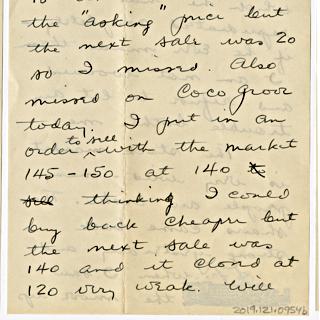 the "asking" price but
the next sale was 20
so I missed. Also
missed on Coco Grove
today. I put in an
order to sell with the market
145-150 at 140 to
sell thinking I could
buy back cheaper but
the next sale was
140 and it closed at
120 very weak. Will
2019.121.0954b